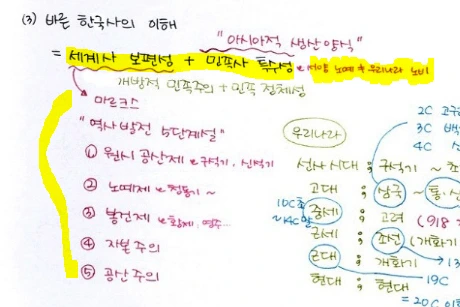 (3) 바른 한국사의 이해
"아시아적 생산양식"
= 세계사 보편성 + 민족사 특수성 e 서양 노예 ≠ 우리나라 노비
개방적 민족주의 + 민족 정체성
마르크스
"역사 발전 5단계설"
① 원시 공산제 e 구석기, 신석기
② 노예제 e 청동기 ~
③ 봉건제 e 황제, 영주...
④ 자본주의
⑤ 공산주의
2C 고구
3C 백
4C 신
우리나라
선사시대 ; 구석기 ~
고대 ; 삼국 ~ 통
10C초 ~14C말
중세 ; 고려 (918
근세 ; 조선 (개화기
13
근대 ; 개화기
19C
현대 ; 현대
= 20C